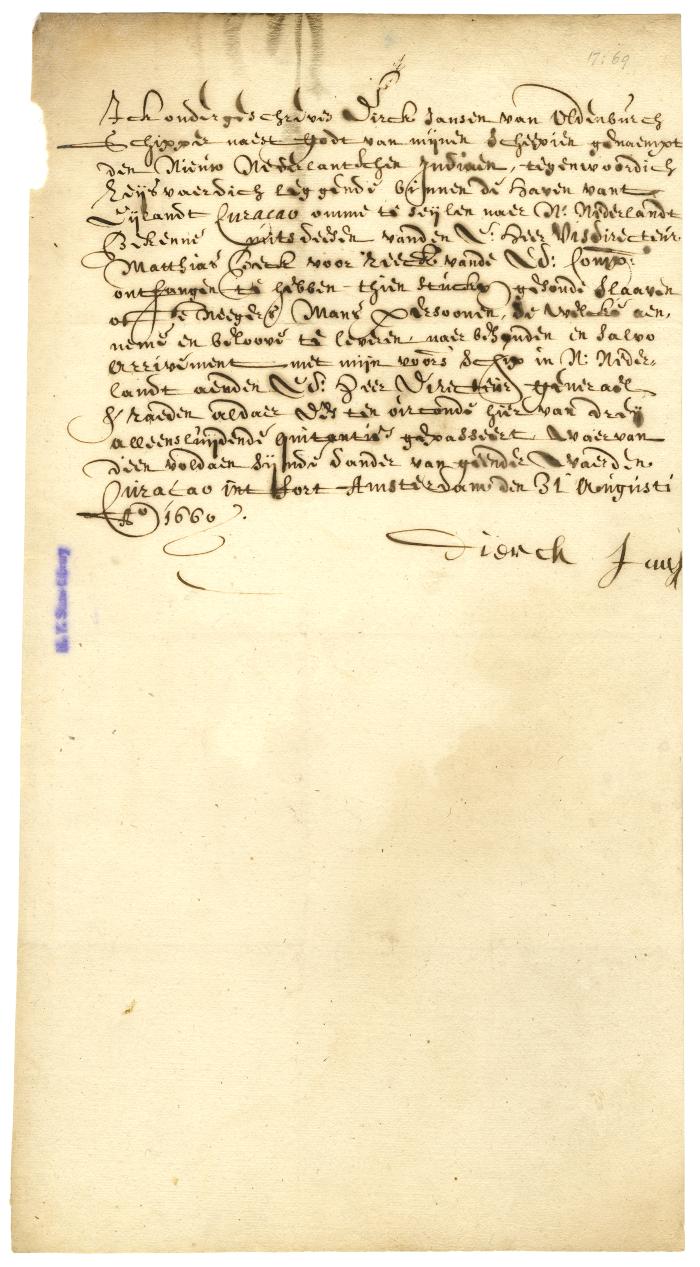 17:69
Ick ondergeschreven Dirck Jansen van Oldenburch
Schipper naest Godt van mijnen Scheepien genaempt
den Nieuw Nederlantschen Indiaen, tegenwoordich
Reijsvaerdich leggende binnen de Haven vant
Eijlandt Curacao omme te seijlen naer N: Nederlandt
Bekenne mits deesen vanden E: Heer Visdirecteur
Matthias Beck voor Reeck: vande Ed: Comp:
ontfangen te hebben thien stucks gesonde slaaven
ofte Neegers Mans persoonen, de welcke aen,
neme en beloove te leveren naer behouden en salvo
Arrivement met mijn voors Schip in N: Neder,
landt aenden Ed: Heer Directeur generael
& Raeden aldaer des ten oirconde hier van drey
alleensluijdende quitantie gepasseert, waervan
deen voldaen sijnde dander van geender waerden
Curacao int fort Amsterdam den 31 Augusti
Ao 1660.
Dierck Jans